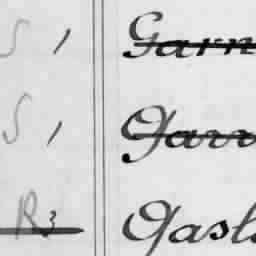 S 1 Garn
S 1 Garr
R3 Gasl